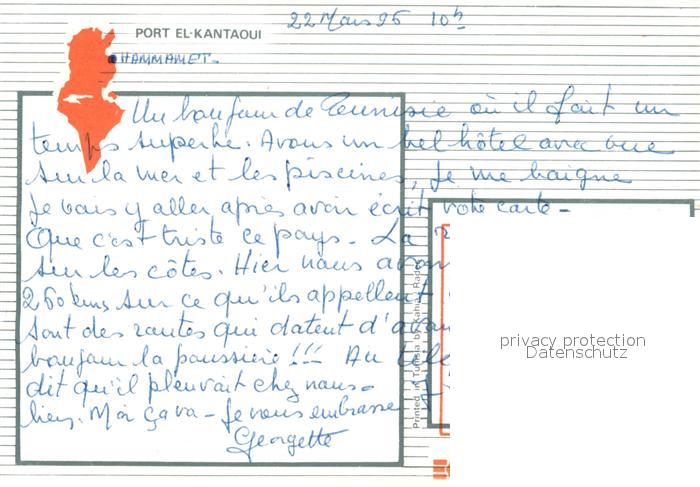 22 Mars 95 10h
PORT EL-KANTAOUI
HAMMAMET-
Un bonjour de Tunisie où il fait un
temps superbe. Avons un bel hôtel avec vue
sur la mer et les piscines, Je me baigne
Je vais y aller après avoir écrit votre carte-
Que c'est triste ce pays- La
sur les côtes. Hier nous avon
260 kms sur ce qu'ils appellent
sont des routes qui datent d'avan
bonjour la poussière !!! Au télé
dit qu'il pleuvait chez nous-
bien. Moi ça va- Je vous embrasse
Georgette
Printed in Tunisia by Kahia
privacy protection
Datenschutz